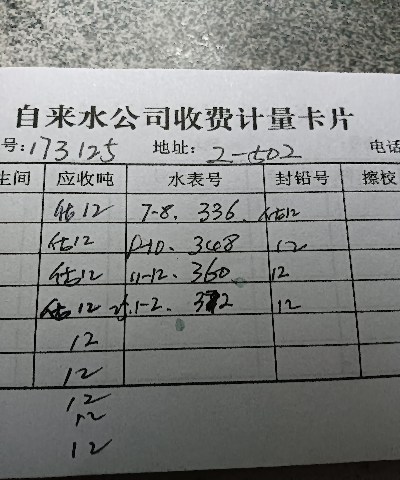 自来水公司收费计量卡片
号:173125 地址: 2-502 电话
生间 应收吨 水表号 封铅号 擦校
估12 7-8. 336. 估12
估12 9-10. 348 12
估12 11-12. 360 12
估12 1-2. 372 12
12
12
12
12
12